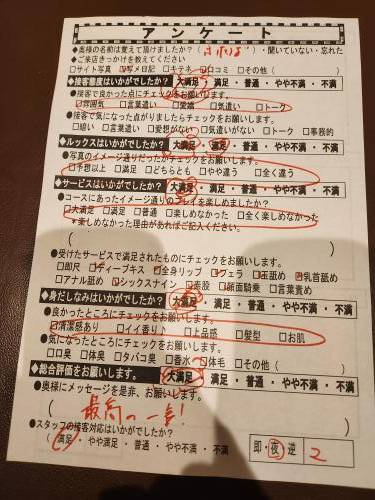 アンケート
◆奥様の名前は覚えて頂けましたか?( )・聞いていない・忘れた
◆ご来店きっかけを教えてください
□サイト写真 □写メ日記 □キテネ □口コミ □その他( )
◆接客態度はいかがでしたか? 大満足・満足・普通・やや不満・不満
●接客で良かった点にチェックをお願いします。
□雰囲気 □言葉遣い □愛嬌 □気遣い □トーク
●接客で気になった点がありましたらチェックをお願いします。
□暗い □言葉遣い □愛想がない □気遣いがない □トーク □事務的
◆ルックスはいかがでしたか? 大満足・満足・普通・やや不満・不満
●写真のイメージ通りだったかチェックをお願いします。
□予想以上 □満足 □どちらとも □やや違う □全く違う
◆サービスはいかがでしたか? 大満足・満足・普通・やや不満・不満
●コースにあったイメージ通りのプレイを楽しめましたか?
□大満足 □満足 □普通 □楽しめなかった □全く楽しめなかった
★楽しめなかった理由があればご記入ください。
( )
●受けたサービスで満足されたものにチェックをお願いします。
□即尺 □ディープキス □全身リップ □フェラ □玉舐め □乳首舐め
□アナル舐め □シックスナイン □素股 □顔面騎乗 □言葉責め
◆身だしなみはいかがでしたか? 大満足・満足・普通・やや不満・不満
●良かったところにチェックをお願いします。
□清潔感あり □イイ香り♪ □上品感 □髪型 □お肌
●気になったところにチェックをお願いします。
□口臭 □体臭 □タバコ臭 □香水 □体毛 □その他( )
◆総合評価をお願いします。 大満足・満足・普通・やや不満・不満
●奥様にメッセージを是非、お願いします。
( 最高の一言! )
●スタッフの接客対応はいかがでしたか?
(満足・やや満足・普通・やや不満・不満
即・夜・逆 2